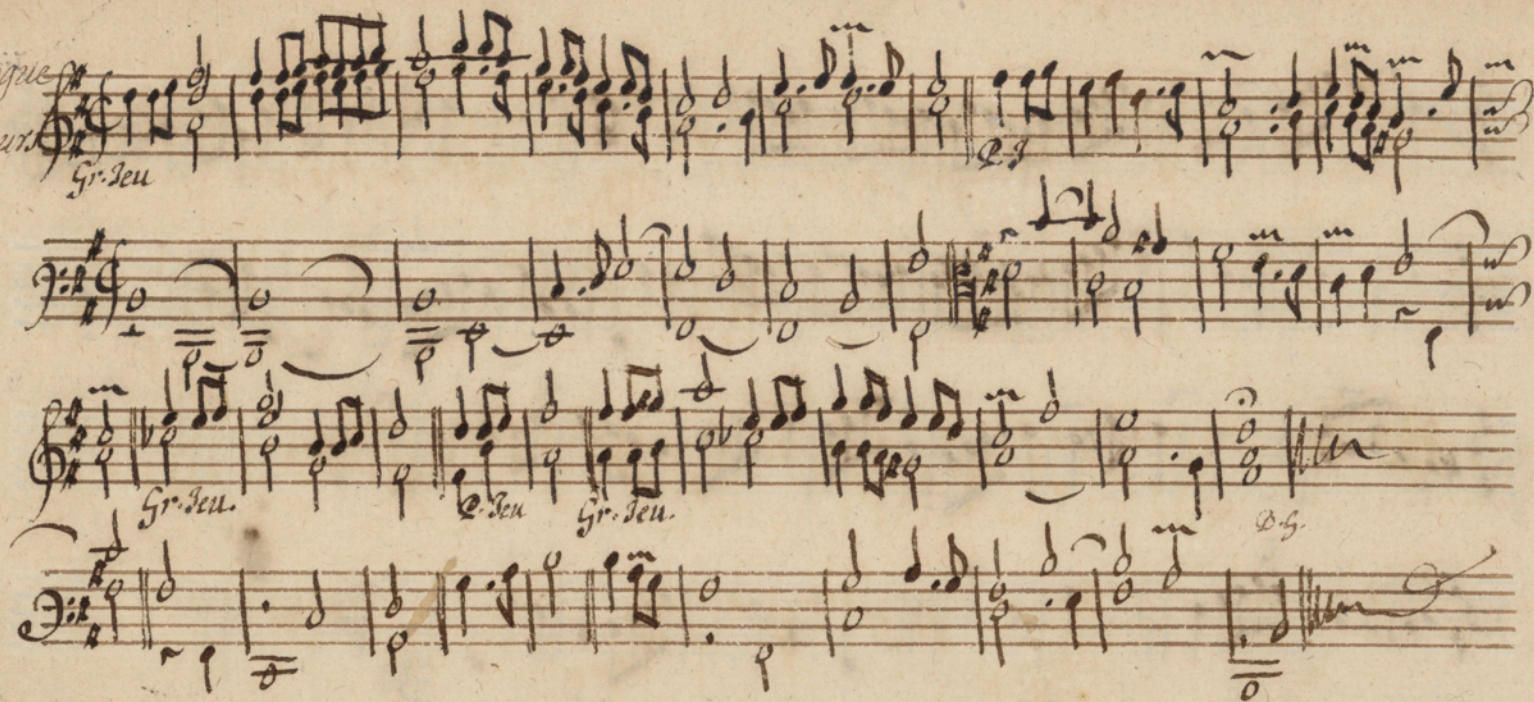 Gr. Jeu
P. J
Gr. Jeu.
P. Jeu
Gr. Jeu.
D. G.